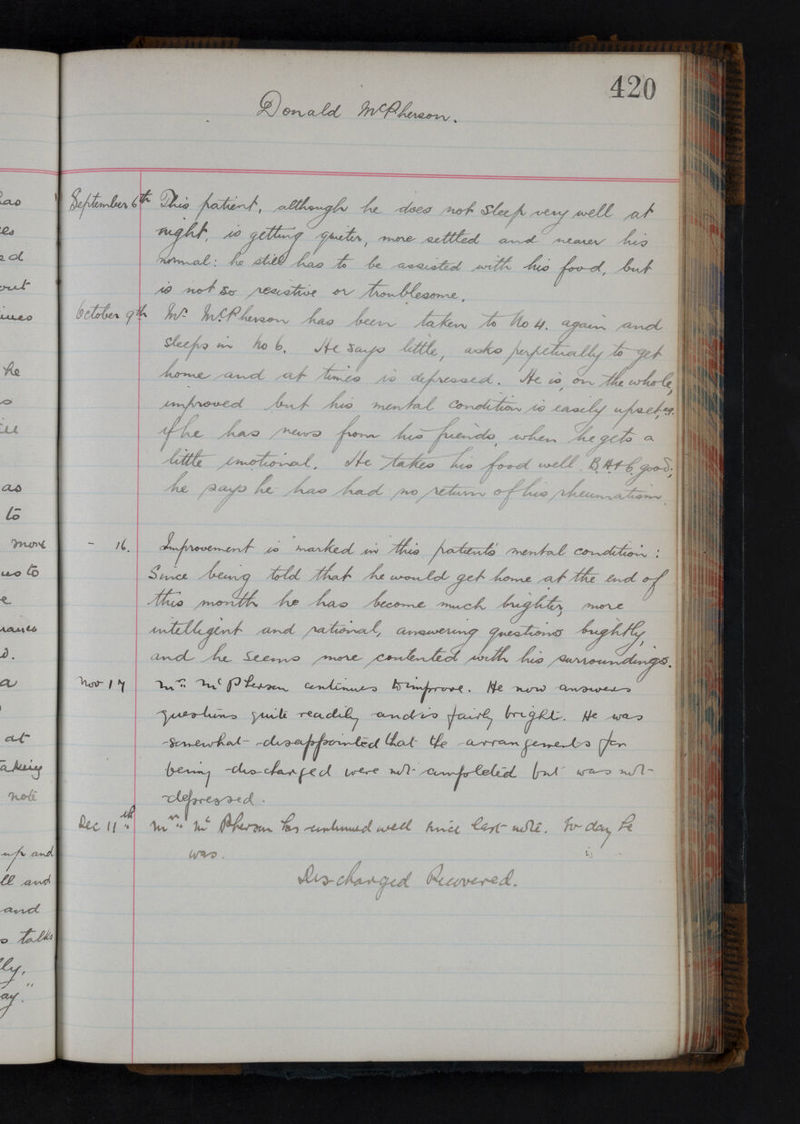 420
Donald McPherson.
September 6th This patient, although he does not sleep very well at
night, is getting quieter, more settled and nearer his
normal: he still has to be assisted with his food, but
is not so resistive or troublesome.
October 9th Mr. McPherson has been taken to No 4. again and
sleeps in No 6. He says little, asks perpetually to get
home and at times is depressed. He is, on the whole,
improved but his mental condition is easily upset, eg.
if he has news from his friends, when he gets a
little emotional. He takes his food well. B.H.& good;
he says he has had no return of his rheumatism.
- 16. Improvement is marked in this patient's mental condition:
Since being told that he would get home at the end of
this month he has become much brighter, more
intelligent and rational, answering questions brightly,
and he seems more contented with his surroundings.
Nov 17 Mr. McPherson continues to improve. He now answers
questions quite readily and is fairly bright. He was
somewhat disappointed that the arrangements for
being discharged were not completed but was not
depressed.
Dec 11th Mr. McPherson has continued well since last note. To day he
was. is
Discharged Recovered.
has
es
ed
out
he
as
to
more
us to
e
d.
a
at
taking
note
up and
ll and
and
talks
lly.
ay."